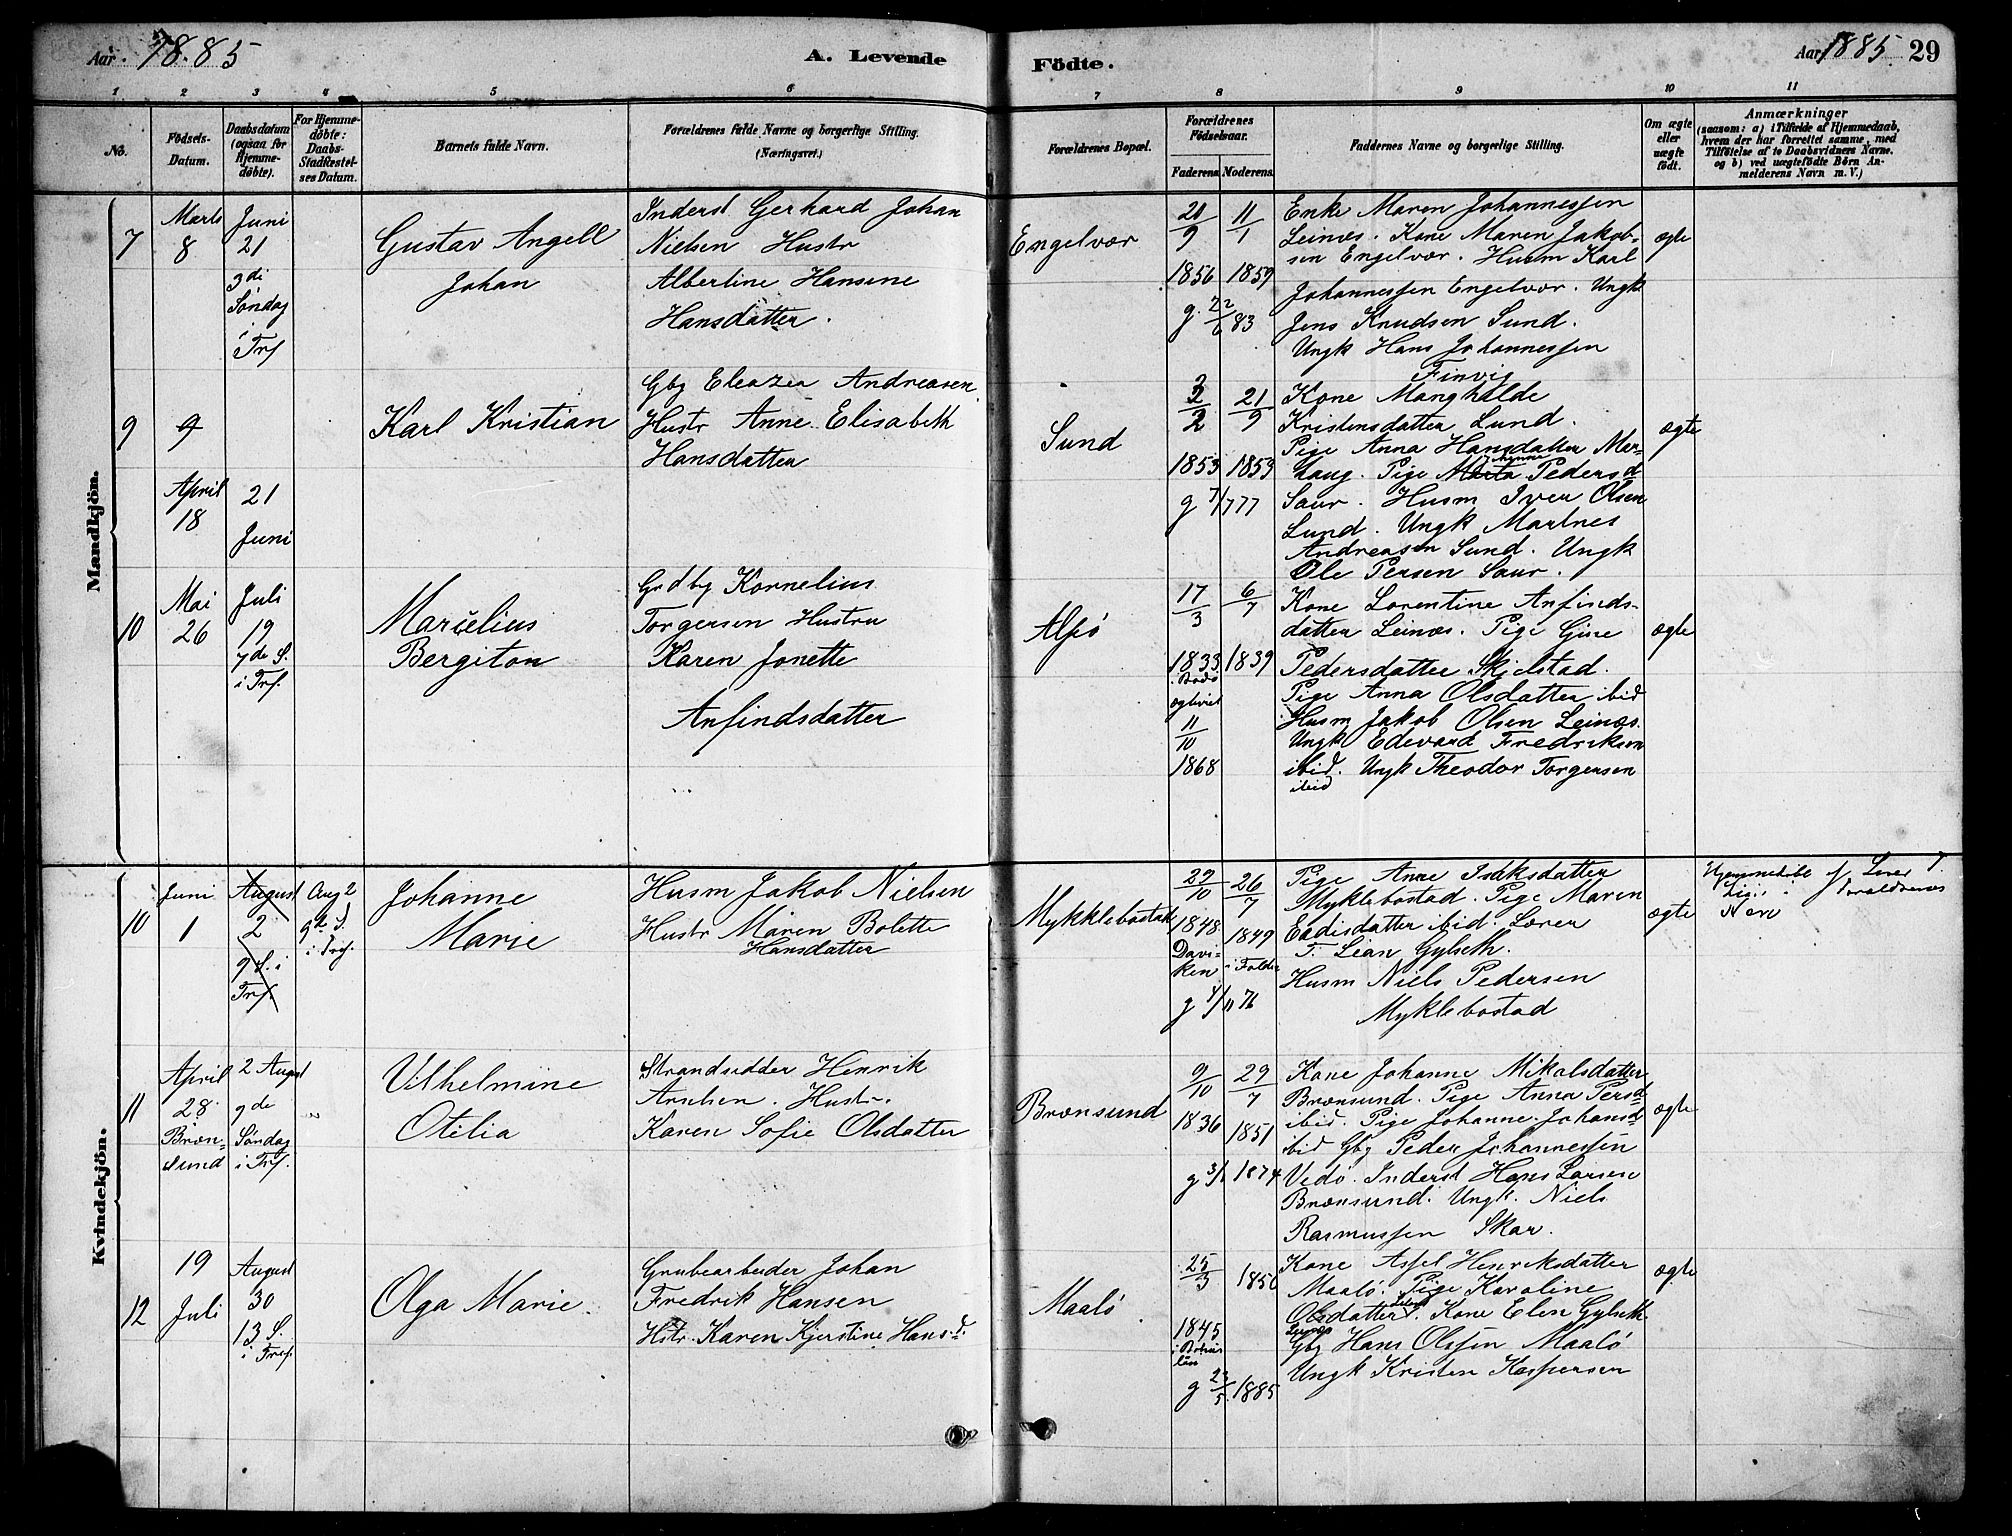 Aar. 1885
A. Levende
Födte.
Aar 1885. 29
1 2 3 4 5 6 7 8 9 10 11
No.
Födsels-
Datum.
Daabsdatum
(ogsaa for
Hjemme-
döbte).
For Hjemme-
döbte:
Daabs-
Stadfæstel-
ses Datum.
Barnets fulde Navn.
Forældrenes fulde Navne og borgerlige Stilling.
(Næringsvei.)
Forældrenes Bopæl.
Forældrenes
Födselsaar.
Faderens.
Moderens.
Faddernes Navne og borgerlige Stilling.
Om ægte
eller
uægte
födt.
Anmærkninger
(saasom: a) i Tilfælde af Hjemmedaab,
hvem der har forrettet samme, med
Tilföielse af to Daabsvidners Navne,
og b) ved uægtefödte Börn An-
melderens Navn m. V.)
Mandkjön.
7
Marts
8
Juni
21
3di
Søndag
i
Trf
Gustav Angell
Johan
Inderst Gerhard Johan
Nielsen Hustr
Albertine Hansine
Hansdatter.
Engelvær
21/9
1856
11/1
1859
g. 22/6 83
Enke Maren Johannessen
Leinæs. Kone Maren Jakob-
sen Engelvær. Husm Karl
Johannessen Engelvær. Ungk
Jens Knudsen Sund.
Ungk Hans Johannessen
Finvig
ægte
9
9
April
18
21
Juni
Karl Kristian
Gbg Eleazer Andreasen
Hustr Anne Elisabeth
Hansdatter
Sund
1853
21/9
1853
g 7/7 77
Kone Manghilde
Kristensdatter Lund.
Pige Anna Hansdatter Mær-
haug. Pige Pedersd
Saur. Husm Iver Olsen
Lund. Ungk Martnes
Andreasen Sund. Ungk
Ole Persen Saur.
ægte
10
Mai
26
Juli
19
7de S.
i Trf.
Marcelius
Bergiton
Grdbg Kornelius
Torgersen Hustru
Karen Jonette
Anfindsdatter
Alsø
17/3
1833
i Bodø
egteviet
11/10
1868
6/7
1839
Kone Lorentine Anfinds-
datter Leinæs. Pige Gine
Pedersdatter Skjelstad.
Pige Anna Olsdatter ibid
Husm Jakob Olsen Leinæs.
Ungk Edevard Fredriksen
ibid. Ungk Theodor Torgersen
ibid
ægte
Kvindekjön.
10
Juni
1
August
2
9 S. i
Trf.
Aug 2
9de S.
i Trf.
Johanne
Marie
Husm Jakob Nielsen
Hustr Maren Bolette
Hansdatter
Mykklebostad
29/10
1848
Davi-
ken
26/7
1849
i Folden
g 4/11 76
Pige Anne Isaksdatter
Myklebostad. Pige Maren
Eadisdatter ibid. Lærer
T. Lian Gylseth.
Husm Niels Pedersen
Myklebostad
ægte
Hjemmedøbt af Lærer T.
Lian i Forældrenes
11
April
28
Bræn-
sund
2 August
9de
Søndag
i Trf.
"
Vilhelmine
Otilia
Strandsidder Henrik
Arntsen. Hustr.
Karen Sofie Olsdatter
Brænsund
9/10
1836
29/7
1851
g 3/1 1874
Kone Johanne Mikalsdatter
Brænsund. Pige Anna Persd
ibid. Pige Johanne Johansd
ibid Gbg Peder Johannessen
Vedø. Inderst Hans Larsen
Brænsund. Ungk. Niels
Rasmussen Skar.
ægte
12
19
Juli
August
30
13 S.
i Tref.
Olga Marie.
Grubearbeider Johan
Fredrik Hansen
Hstr. Karen Kjerstine Hansd.
Maalø
25/3
1845
1850
g 23/5 1885
Kone Assel Henriksdatter
Maalø. Pige Karoline
Olsdatter. Kone Elen Gylseth
Gbg Hans Olssen Maalø
Ungk Kristen Kaspersen
ægte